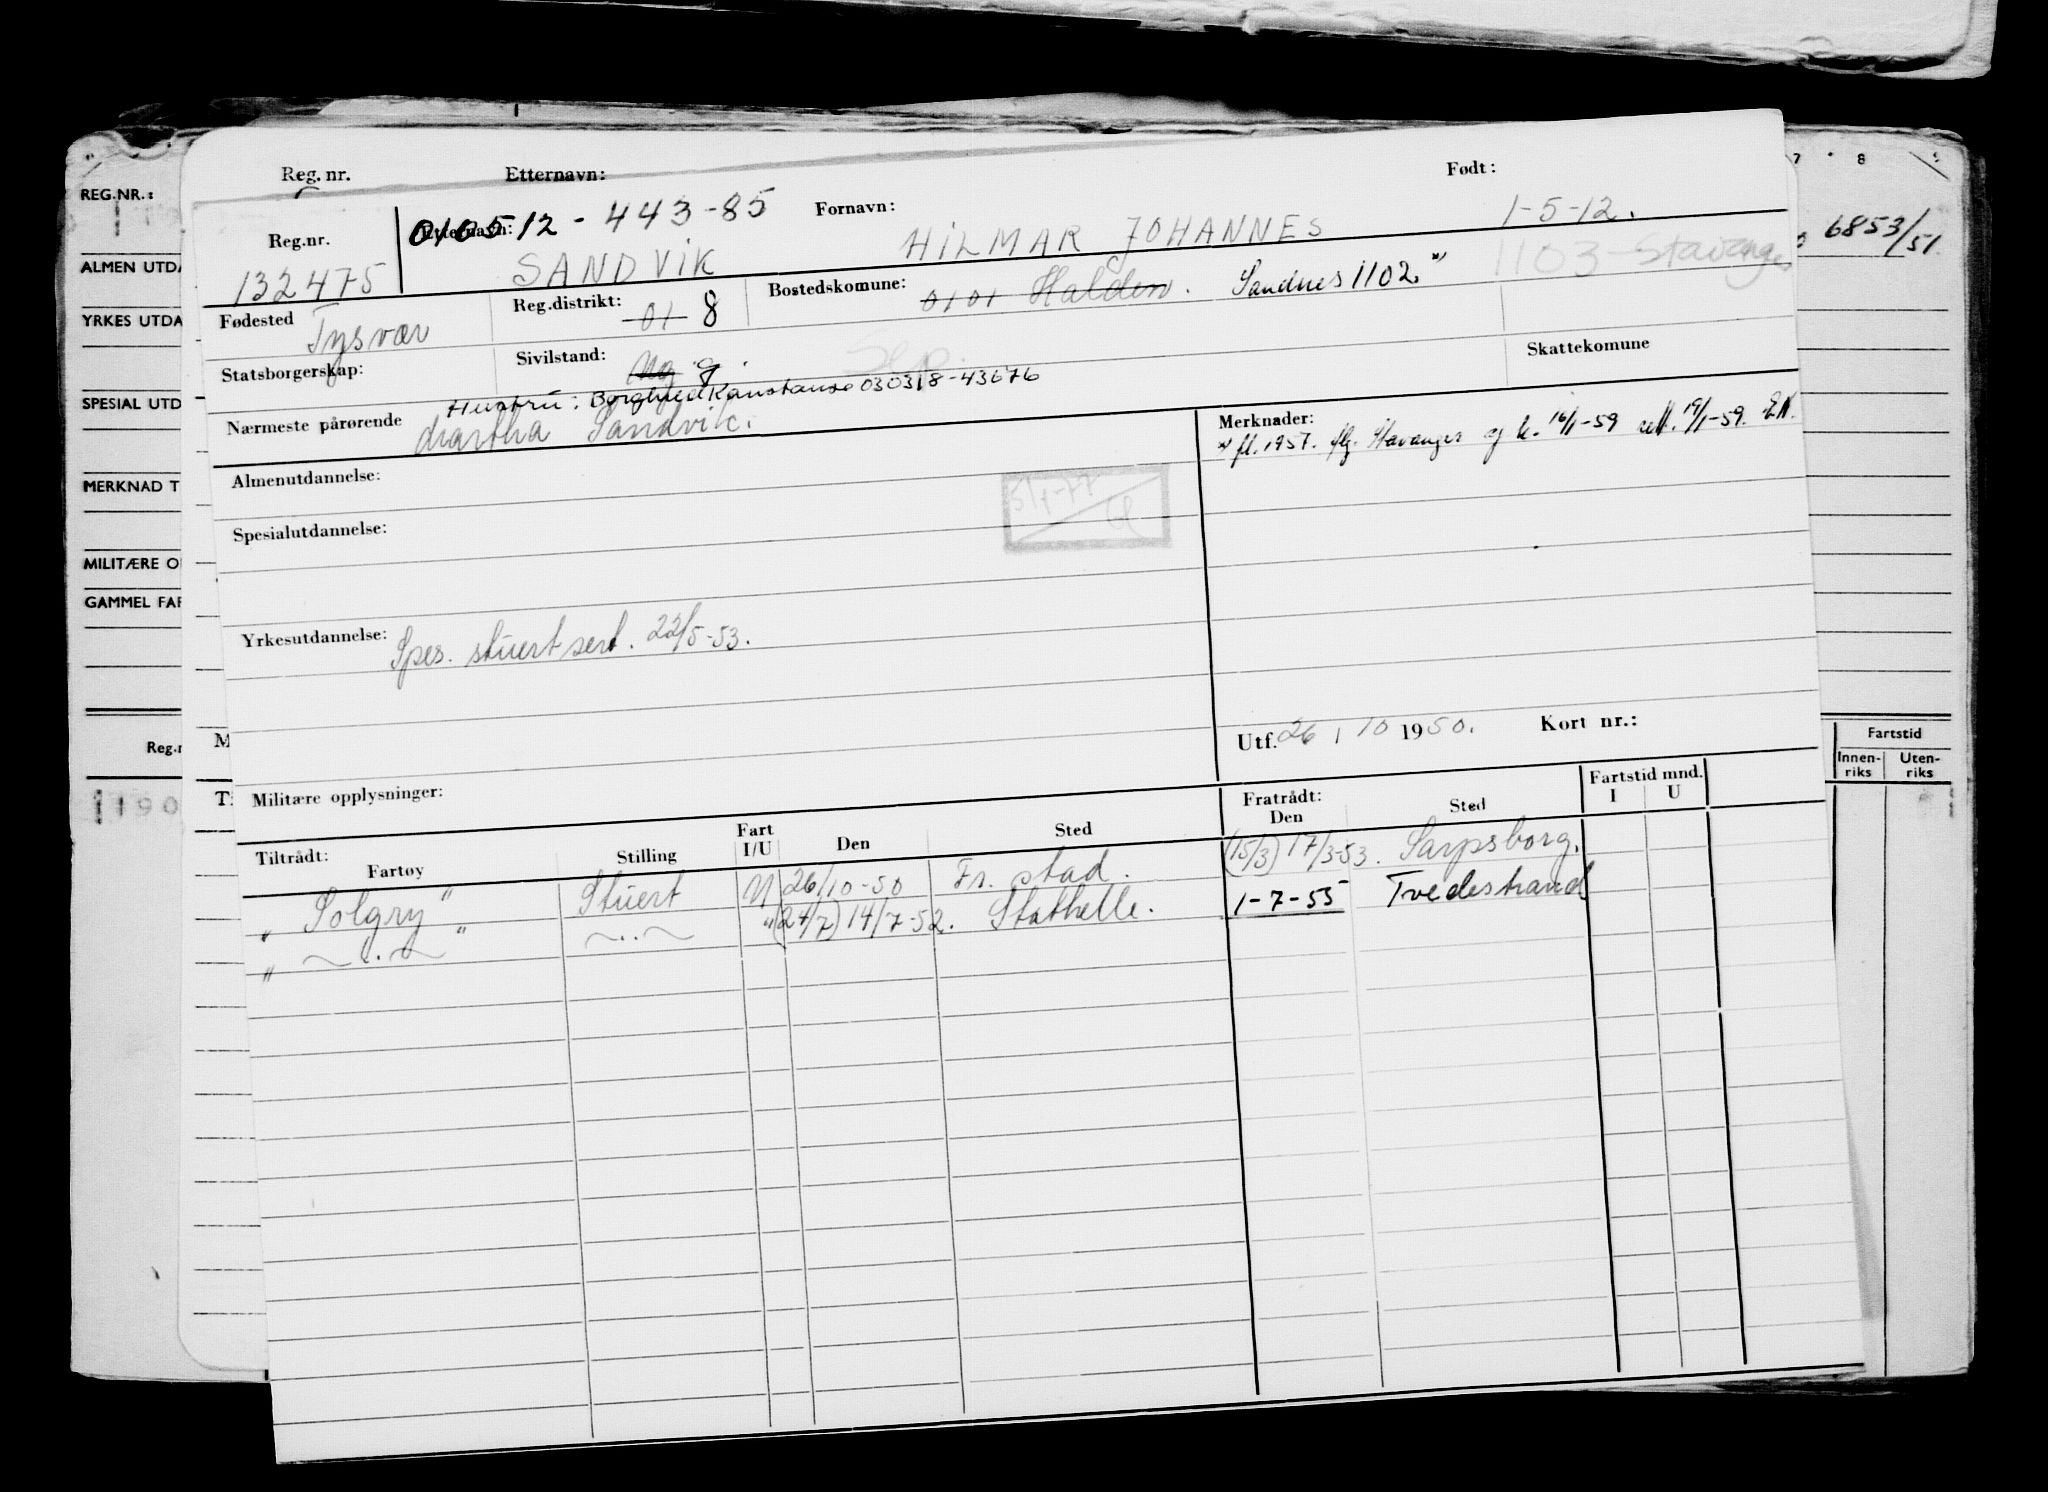 Reg. nr. Etternavn: Fornavn: Født:
REG.NR.:
7 8
010512 - 443-85
Reg.nr. Etternavn:
132475 SANDVIK HILMAR JOHANNES 1-5-12.
6853/51.
ALMEN UTDA
Fødested Tysvær Reg.distrikt: 01 8 Bostedskomune: 0101 Halden. Sandnes 1102. *) 1103-Stavanger
YRKES UTDA
Statsborgerskap: Sivilstand: Ug g. Sep. Skattekomune
Hustru: Borghild Konstanse 030318-43676
SPESIAL UTD
Nærmeste pårørende Martha Sandvik. Merknader:
*) fl. 1957. flg. Stavanger 16/1-59 19/1-59. EN.
MERKNAD T
Almenutdannelse:
5/1-77
Spesialutdannelse:
MILITÆRE O
GAMMEL FAR
Yrkesutdannelse: Spes. stuertsert. 22/5-53.
Utf. 26 / 10 1950. Kort nr.:
Reg.n M
Fartstid
Innen-riks Uten-riks
1190 T
Militære opplysninger:
Tiltrådt: Fratrådt: Fartstid mnd.
Fartøy Stilling Fart I/U Den Sted Den Sted I U
„ Solgry " Stuert U 26/10-50 Fr. stad. (15/3) 17/3-53. Sarpsborg.
„ ~ . ~ " ~..~ " (24/7) 14/7-52. Stathelle. 1-7-55 Tvedestrand